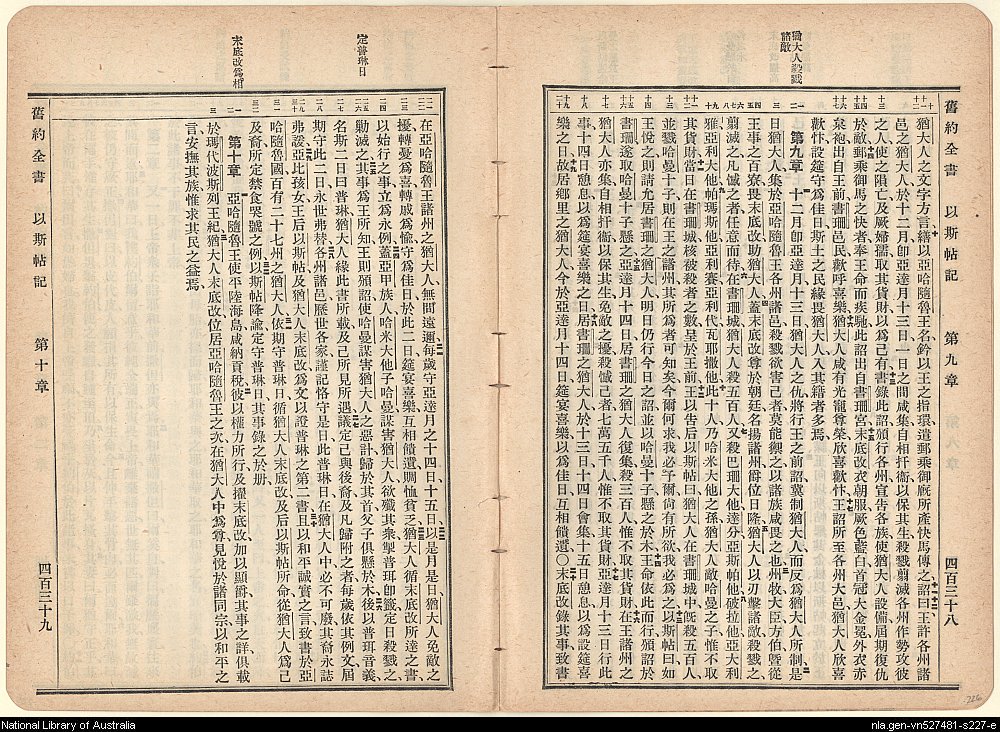 舊約全書 以斯帖記 第九章 四百三十八
猶大人殺戮諸敵
猶大人之文字方言繕以亞哈隨魯王名鈐以王之指環遣郵乘御廐所產快馬傳之詔曰王許各州諸
邑之猶大人於十二月卽亞達月十三日一日之間咸集自相扞衞以保其生殺戮翦滅各州作勢攻彼
之人使之隕亡及厥婦孺取其貨財以爲己有書錄此詔頒行各州宣告各族使猶大人設備屆期復仇
於敵郵乘御馬之快者奉王命而疾馳此詔出自書珊宮末底改衣朝服厥色藍白首冠大金冕外衣赤
枲袍出自王前書珊邑民歡呼喜樂猶大人咸有光寵尊榮欣喜歡忭王詔所至各州大邑猶大人欣喜
歡忭設筵守爲佳日斯土之民緣畏猶大人入其籍者多焉
第九章 十二月卽亞達月十三日猶大人之仇將行王之前詔冀制猶大人而反爲猶大人所制是
日猶大人集於亞哈隨魯王各州諸邑殺戮欲害己者莫能禦之以諸族咸畏之也州牧大臣方伯暨從
王事之百寮畏末底改助猶大人蓋末底改尊於朝廷名揚諸州爵位日隆猶大人以刃擊諸敵殺戮之
翦滅之凡憾之者任意而待在書珊城猶大人殺五百人又殺巴珊大他達分亞斯帕他破拉他亞大利
雅亞利大他帕瑪斯他亞利賽亞利代瓦耶撒他此十人乃哈米大他之孫猶大人敵哈曼之子惟不取
其貨財當日在書珊城核被殺者之數呈於王前王以告后以斯帖曰猶大人在書珊城中旣殺五百人
並戮哈曼十子則在王之諸州其所爲者可知矣今爾何求我必予爾尙有所欲我必爲之以斯帖曰如
王悅之則請允居書珊之猶大人明日仍行今日之詔並以哈曼十子懸之於木王命依此而行頒詔於
書珊遂取哈曼十子懸之亞達月十四日居書珊之猶大人復集殺三百人惟不取其貨財在王諸州之
猶大人亦集自相扞衞以保其生免敵之擾殺憾己者七萬五千人惟不取其貨財亞達月十三日行此
事十四日憩息以爲筵宴喜樂之日居書珊之猶大人於十三日十四日會集十五日憩息以爲設筵喜
樂之日故居鄉里之猶大人今於亞達月十四日筵宴喜樂以爲佳日互相饋遺○末底改錄其事致書
定普琳日
末底改爲相
在亞哈隨魯王諸州之猶大人無間遠邇每歲守亞達月之十四日十五日以是月是日猶大人免敵之
擾轉憂爲喜轉戚爲愉守爲佳日於此二日筵宴喜樂互相饋遺賙恤貧乏猶大人循末底改所達之書
以始行之事立爲永例蓋亞甲族人哈米大他子哈曼謀害猶大人欲殲其衆掣普珥卽籤定日殺戮之
勦滅之其事爲王所知王則頒詔使哈曼謀害猶大人之惡計歸於其首父子俱懸於木後以普珥音義
名斯二日曰普琳猶大人緣此書所載及己所見所遇議定己與後裔及凡歸附之者每歲依其例文屆
期守此二日永世弗替各州諸邑歷世各家謹記恪守是日此普琳日在猶大人中必不可廢其裔永誌
弗諼亞比孩女王后以斯帖及猶大人末底改爲文以證普琳之第二書且以和平誠實之言致書於亞
哈隨魯國百有二十七州之猶大人依期守普琳日循猶大人末底改及后以斯帖所命從猶大人爲己
及裔所定禁食哭號之例以斯帖降諭定守普琳日其事錄之於册
第十章 亞哈隨魯王使平陸海島咸納貢稅彼以權力所行及擢末底改加以顯爵其事之詳俱載
於瑪代波斯列王紀猶大人末底改位居亞哈隨魯王之次在猶大人中爲尊見悅於諸同宗以和平之
言安撫其族惟求其民之益焉
舊約全書 以斯帖記 第十章 四百三十九
226
National Library of Australia
nla.gen-vn527481-s227-e